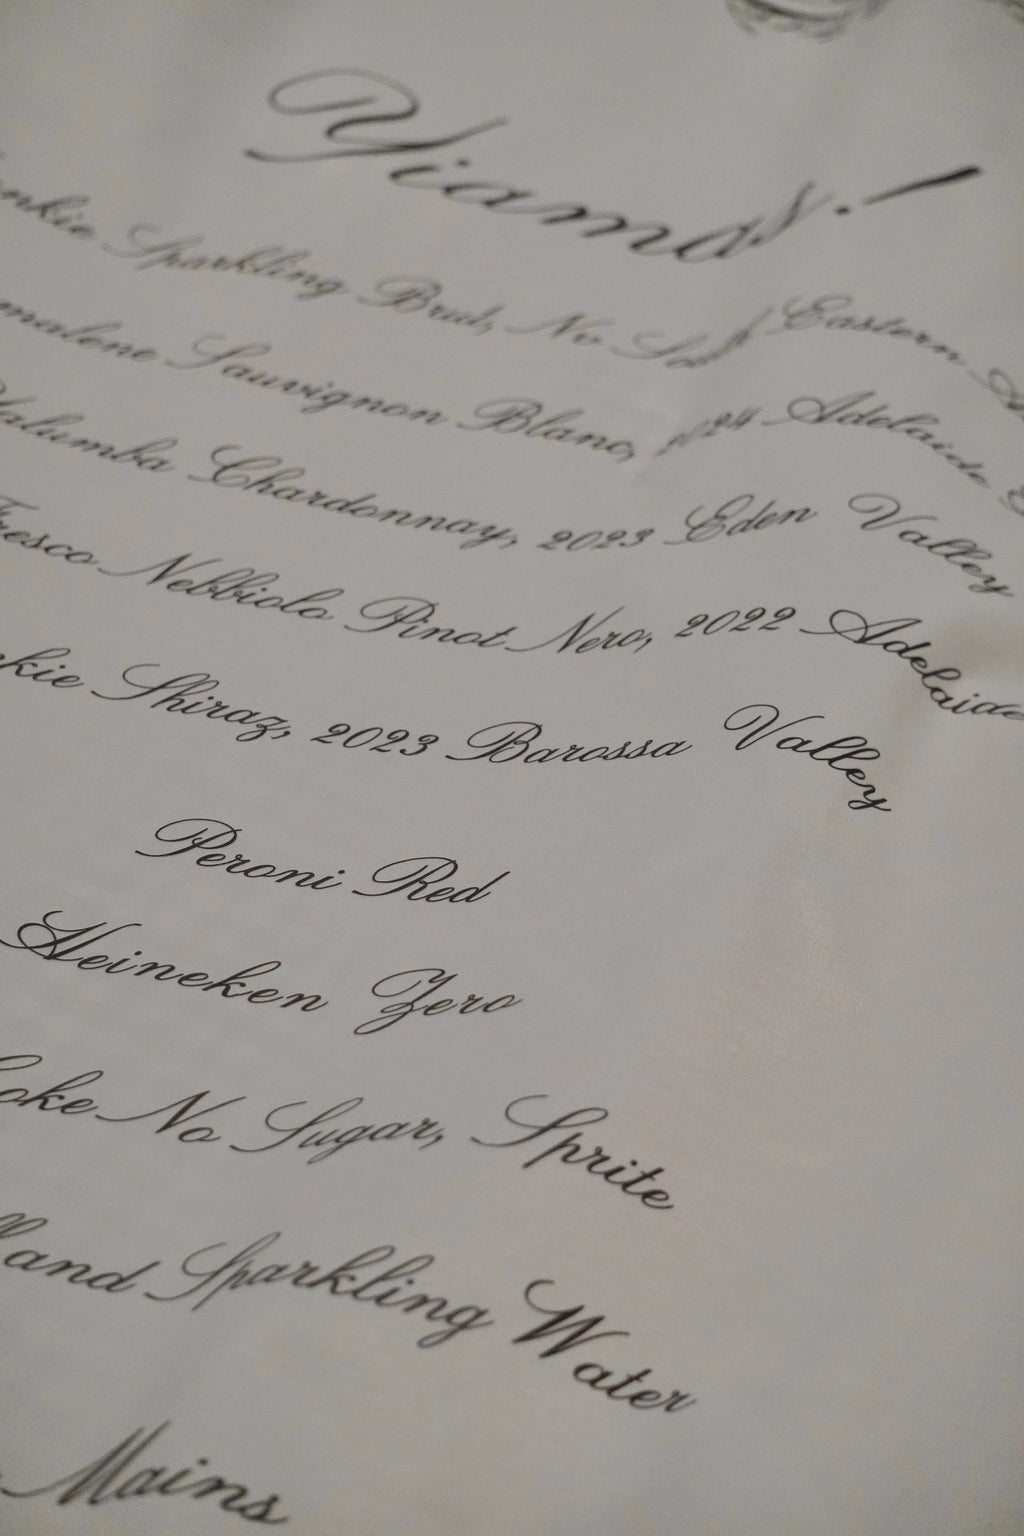 Yiamas!
Sparkling Brut, No Eastern
Sauvignon Blanc, 2024 Adelaide
Chardonnay, 2023 Eden Valley
Fresco Nebbiolo Pinot Nero, 2022 Adelaide
Shiraz, 2023 Barossa Valley
Peroni Red
Heineken Zero
Coke No Sugar, Sprite
Sparkling Water
Mains